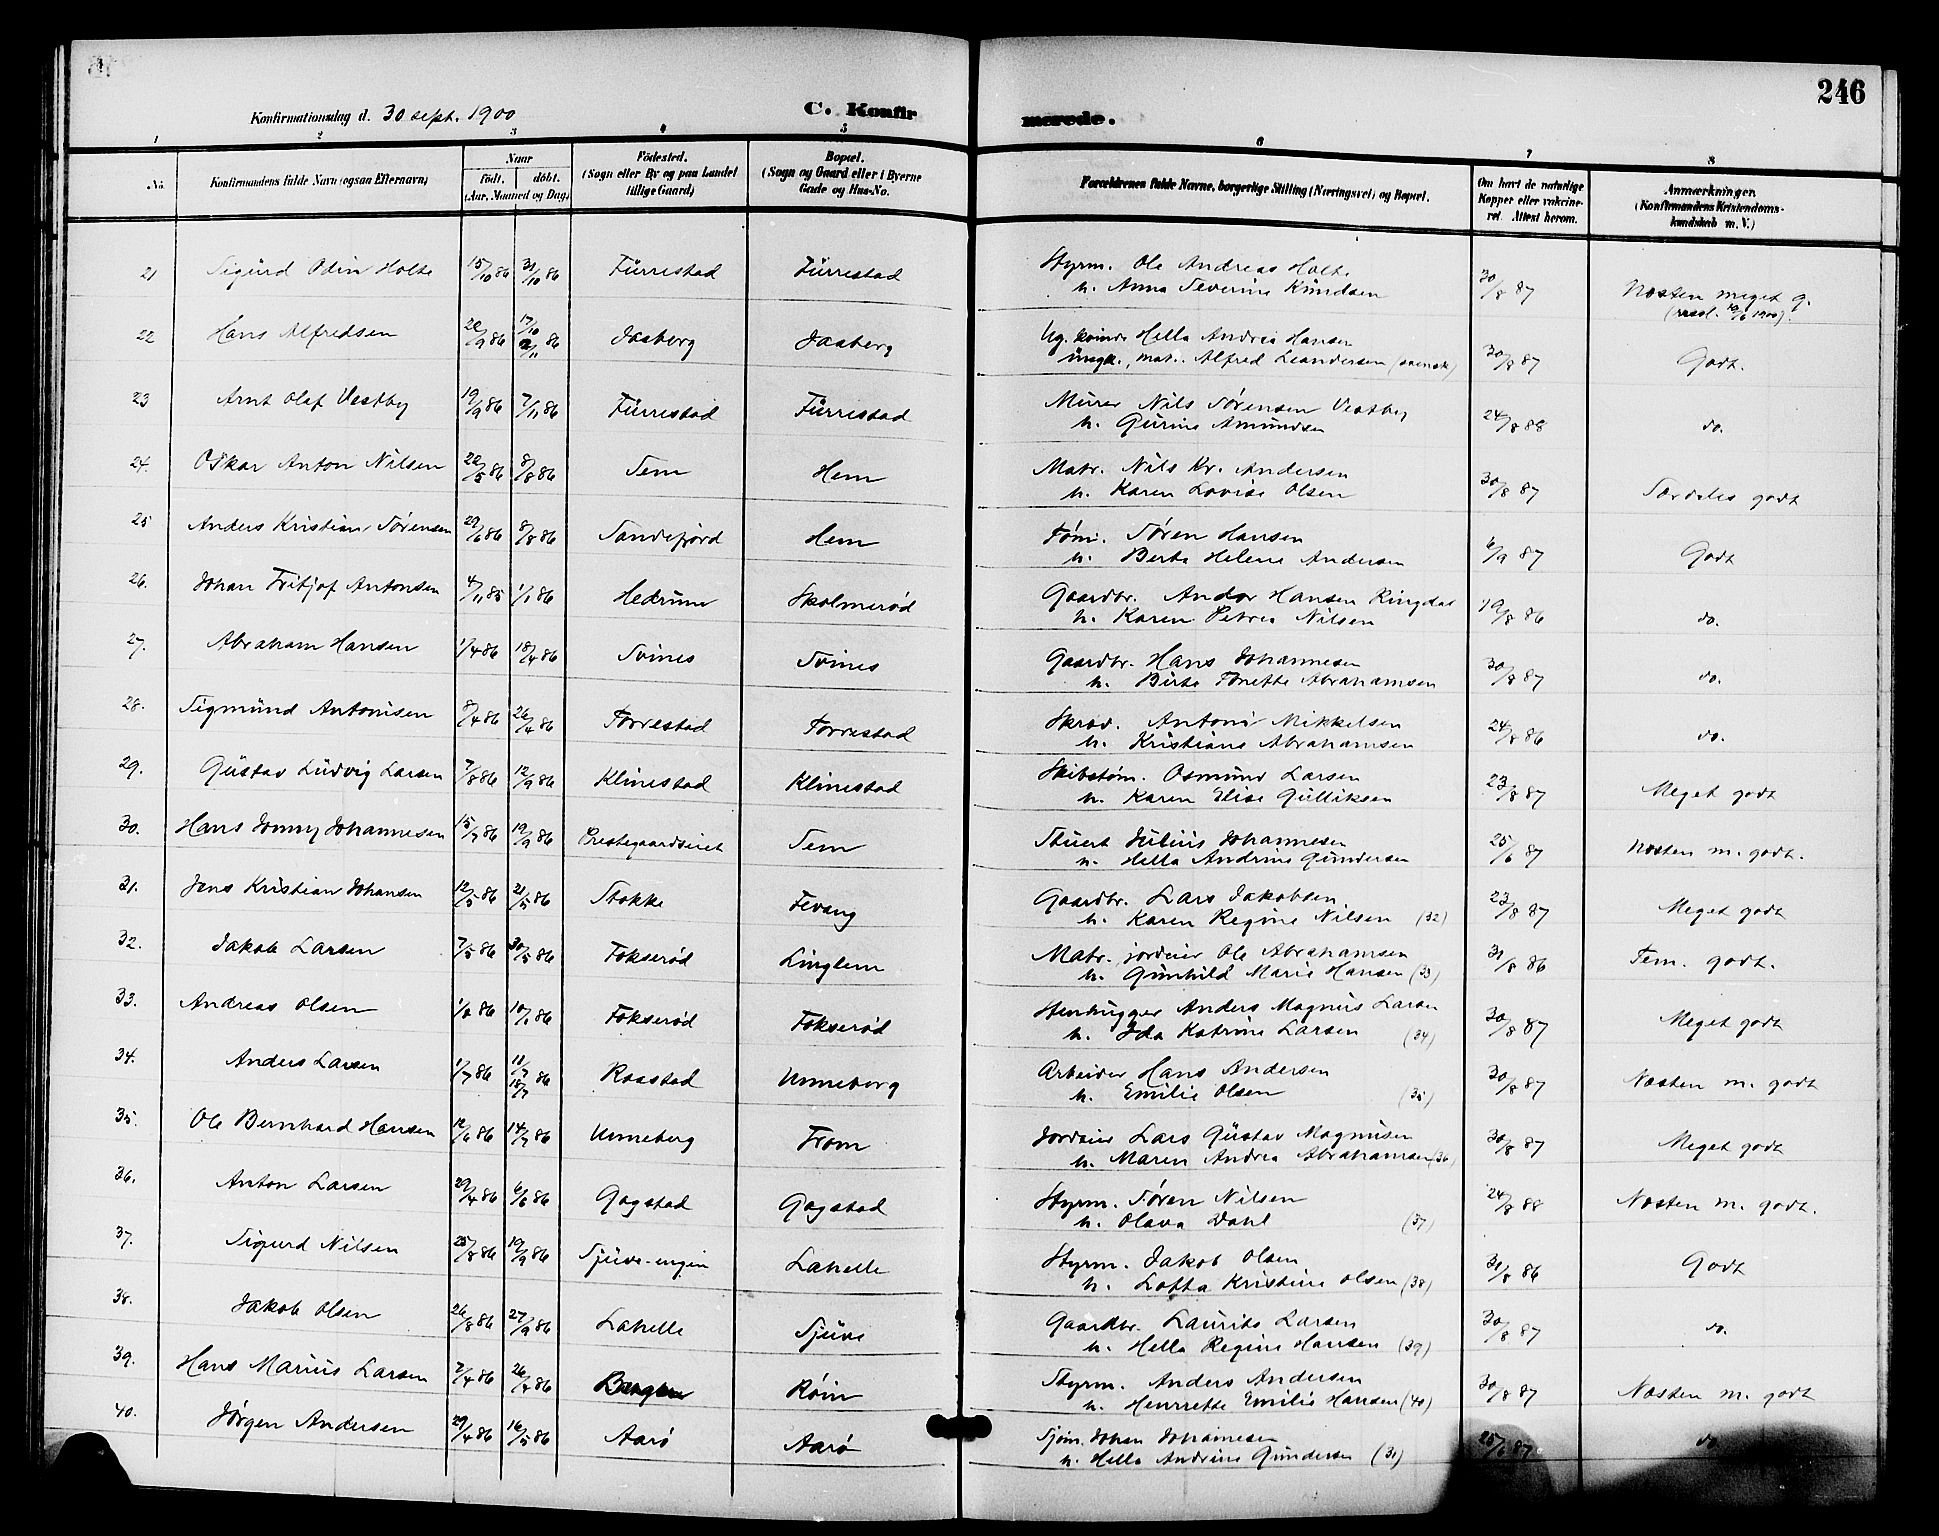 246
Konfirmationsdag d. 30 sept. 1900
C. Konfirmerede.
1 2 3 4 5 6 7 8
No. Konfirmandens fulde Navn (ogsaa Efternavn) Naar født. døbt. (Aar, Maaned og Dag) Fødested. (Sogn eller By og paa Landet tillige Gaard) Bopæl. (Sogn og Gaard eller i Byerne Gade og Hus-No. Forældrenes fulde Navne, borgerlige Stilling (Næringsvei) og Bopæl. Om havt de naturlige Kopper eller vakcineret. Attest herom. Anmærkninger. (Konfirmandens Kristendomskundskab m. V.)
21 Sigurd Odin Holte 15/10 86 31/10 86 Furrestad Furrestad Styrm. Ole Andreas Holte
h. Anna Severine Knudsen 30/8 87 Næsten meget g.
22 Hans Alfredsen 20/9 86 17/10 86 Jaaberg Jaaberg Ug. kvinde Hella Andrea Hansen
ungk., mat. Alfred Leandersen (svensk) 30/8 87 Godt.
23 Arnt Olaf Vestby 19/9 86 7/11 86 Furrestad Furrestad Murer Nils Sørensen Vestby
h. Gurine Amundsen 24/8 88 do.
24. Oskar Anton Nilsen 22/5 86 8/8 86 Sem Hem Matr. Nils Kr. Andersen
h. Karen Lovise Olsen 30/8 87 Særdeles godt
25 Anders Kristian Sørensen 29/6 86 8/8 86 Sandefjord Hem Tøm. Søren Hansen
h. Berte Helene Andersen 6/9 87 Godt
26. Johan Fritjof Antonsen 4/11 85 1/1 86 Hedrum Skolmerød Gaardbr. Andor Hansen Ringdal
h. Karen Petrea Nilsen 19/8 86 do.
27. Abraham Hansen 1/4 86 18/4 86 Svines Svines Gaardbr. Hans Johannesen
h. Birte Tonette Abrahamsen 30/8 87 do.
28. Sigmund Antonisen 8/4 86 26/4 86 Torrestad Torrestad Skræd. Antoni Mikkelsen
h. Kristiane Abrahamsen 24/8 86 do.
29. Gustav Ludvig Larsen 7/8 86 12/9 86 Klinestad Klinestad Skibstøm. Osmund Larsen
h. Karen Elise Gulliksen 23/8 87 Meget godt
30. Hans Jonny Johannesen 15/7 86 19/9 86 Prestegaardseiet Sem Stuert Julius Johannesen
h. Hella Andrine Gundersen 25/6 87 Næsten m. godt.
31. Jens Kristian Johansen 12/5 86 21/5 86 Stokke Fevang Gaardbr. Lars Jakobsen
h. Karen Regine Nilsen (32) 23/8 87 Meget godt
32. Jakob Larsen 7/5 86 30/5 86 Fokserød Linglem Matr. jordeier Ole Abrahamsen
h. Gunhild Marie Hansen (33) 31/8 86 Tem. godt.
33. Andreas Olsen Fokserød Fokserød Stenhugger Anders Magnus Larsen
h. Ida Katrine Larsen (34) 30/8 87 Meget godt
34. Anders Larsen 1/7 86 11/7 18/7 86 Raastad Unneberg Arbeider Hans Andersen
h. Emilie Olsen (35) 30/8 87 Næsten m. godt
35. Ole Bernhard Hansen 12/6 86 14/7 86 Unneberg From Jordeier Lars Gustav Magnusen
h. Maren Andrea Abrahamsen (36) 30/8 87 Meget godt
36. Anton Larsen 29/4 86 6/6 86 Gogstad Gogstad Styrm. Søren Nilsen
h. Olava Dahl (37) 24/8 88 Næsten m. godt.
37. Sigurd Nilsen 25/8 86 19/9 86 Sjuve-engen Lahelle Styrm. Jakob Olsen
h. Lotta Kristine Olsen (38) 31/8 86 Godt
38. Jakob Olsen 26/8 86 27/9 86 Lahelle Sjuve Gaardbr. Laurits Larsen
h. Hella Regine Hansen (39) 30/8 87 do.
39. Hans Marius Larsen 2/4 86 26/4 86 Røin Styrm. Anders Andersen
h. Henriette Emilie Hansen (40) 30/8 87 Næsten m. godt
40. Jørgen Andersen 29/4 86 16/5 86 Aarø Aarø Sjøm. Johan Johannesen
h. Hella Andrine Gundersen (31) 25/6 87 do